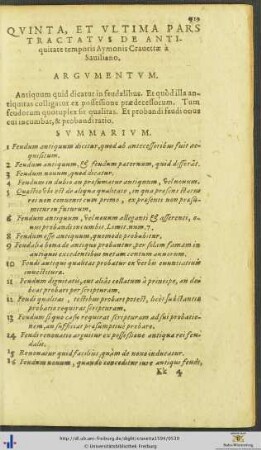 519
QVINTA, ET VLTIMA PARS
TRACTATVS DE ANTI-
quitate temporis Aymonis Crauettæ à
Sauiliano.
ARGVMENTVM.
Antiquum quid dicatur in feudalibus. Et quòd illa an
tiquitas colligatur ex possessione prædecessorum. Tum
feudorum quotuplex sit qualitas. Et probandi feudi onus
cui incumbat, & probandi ratio.
SVMMARIVM.
1 Feudum antiquum dicitur, quod ab antecessoribus fuit ac
quisitum.
2 Feudum antiquum, & feudum paternum, quid differāt.
3 Feudum nouum, quid dicatur.
4 Feudum in dubio an præsumatur antiquum, vel nouum.
5 Quotiescūque est de aliqua qualitate, in qua præsens status
rei non conuenit cum primo, ex præsente non præsu-
mitur in futurum.
6 Feudum antiquum, vel nouum allegans & asserens, o-
nus probandi incumbit. Limit. num. 7.
8 Feudum esse antiquum, quomodo probabitur.
9 Feudalia bona de antiquo probantur, per solam famam in
antiquis excedentibus metam centum annorum.
10 Feudi antiqui qualitas probatur ex verbis enunciatiuis
inuestituræ.
11 Feudum dignitatis, aut aliàs collatum à principe, an de-
beat probari per scripturam.
12 Feudi qualitas, testibus probari potest, licèt substantia
probatio requirat scripturam.
13 Feudum si quo casu requirat scripturam ad sui probatio-
nem, an sufficiat præsumptiuè probare.
14 Feudi renouatio arguitur ex possessione antiqua rei feu-
dalis.
15 Renouatur quid faciliùs, quàm de nouo inducatur.
16 Feudum nouum, quando conceditur iure antiqui feudi,
Kk 4
http://dl.ub.uni-freiburg.de/diglit/crauetta1594/0539
© Universitätsbibliothek Freiburg